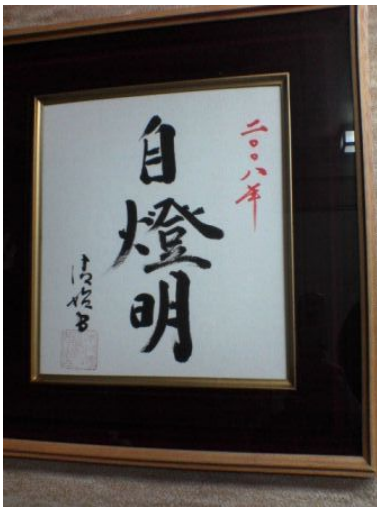 二〇〇八年
自燈明